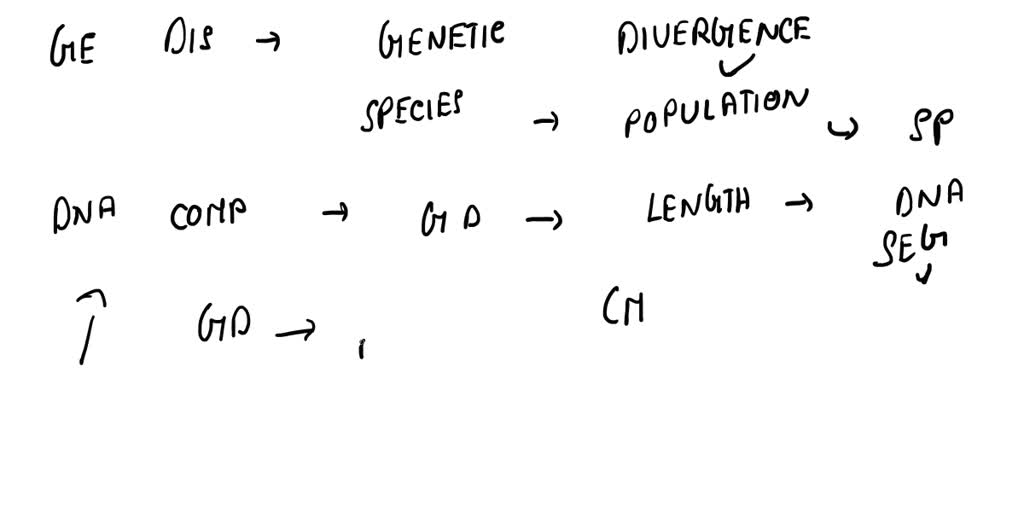 GE DIS → GENETIC DIVERGENCE
SPECIES → POPULATION → SP
DNA COMP → GD → LENGTH → DNA
SEG
↑ GD → CM